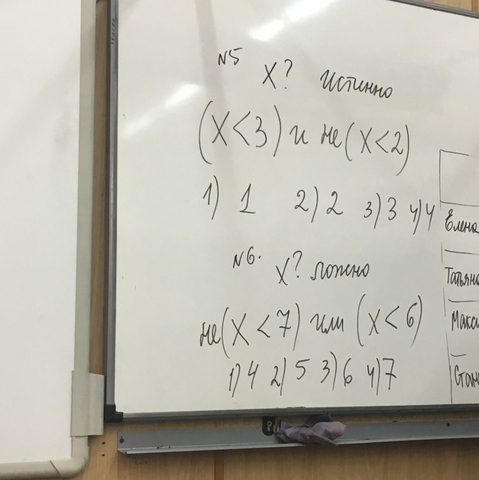 N5
X? истинно
(X<3) и не (X<2)
1) 1 2) 2 3) 3 4) 4
N6.
X? ложно
не(X<7) или (X<6)
1) 4 2) 5 3) 6 4) 7
Елена
Татьяна
Макси
Стани